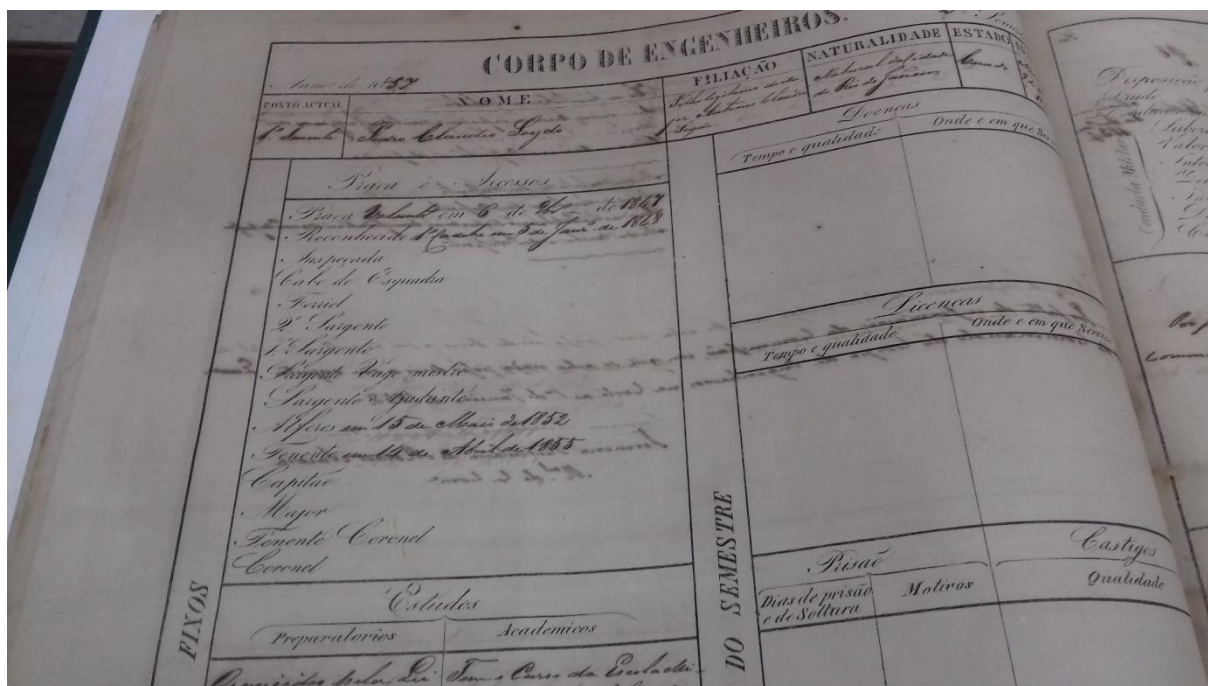 CORPO DE ENGENHEIROS.
Anno de 1857
POSTO ACTUAL
NOME
FILIAÇAO
NATURALIDADE
ESTADO
1º Tenente
Pedro Claudio Soydo
Filho legitimo de
Antonio Claudio
Soydo
Natural da Cidade
do Rio de Janeiro
Praca e Accessos
Praca Volunt em 6 de de 1847
Reconhecido 1º Cadete em 3 de Janrº de 1848
Anspeçada
Cabo de Esquadra
Forriel
2º Sargento
1º Sargento
Sargento Vago mestre
Sargento Ajudante
Alferes em 15 de Maio de 1852
Tenente em 14 de Abril de 1855
Capitão
Major
Tenente Coronel
Coronel
FIXOS
Estudos
Preparatorios
Academicos
Tem o Curso da Escola Mi-
DO SEMESTRE
Doenças
Tempo e qualidade
Onde e em que
Licenças
Tempo e qualidade
Onde e em que Serviço
Prisaõ
Castigos
Dias de prisão
e de Soltura
Motivos
Qualidade
Disposição
Valor
Conducta Militar